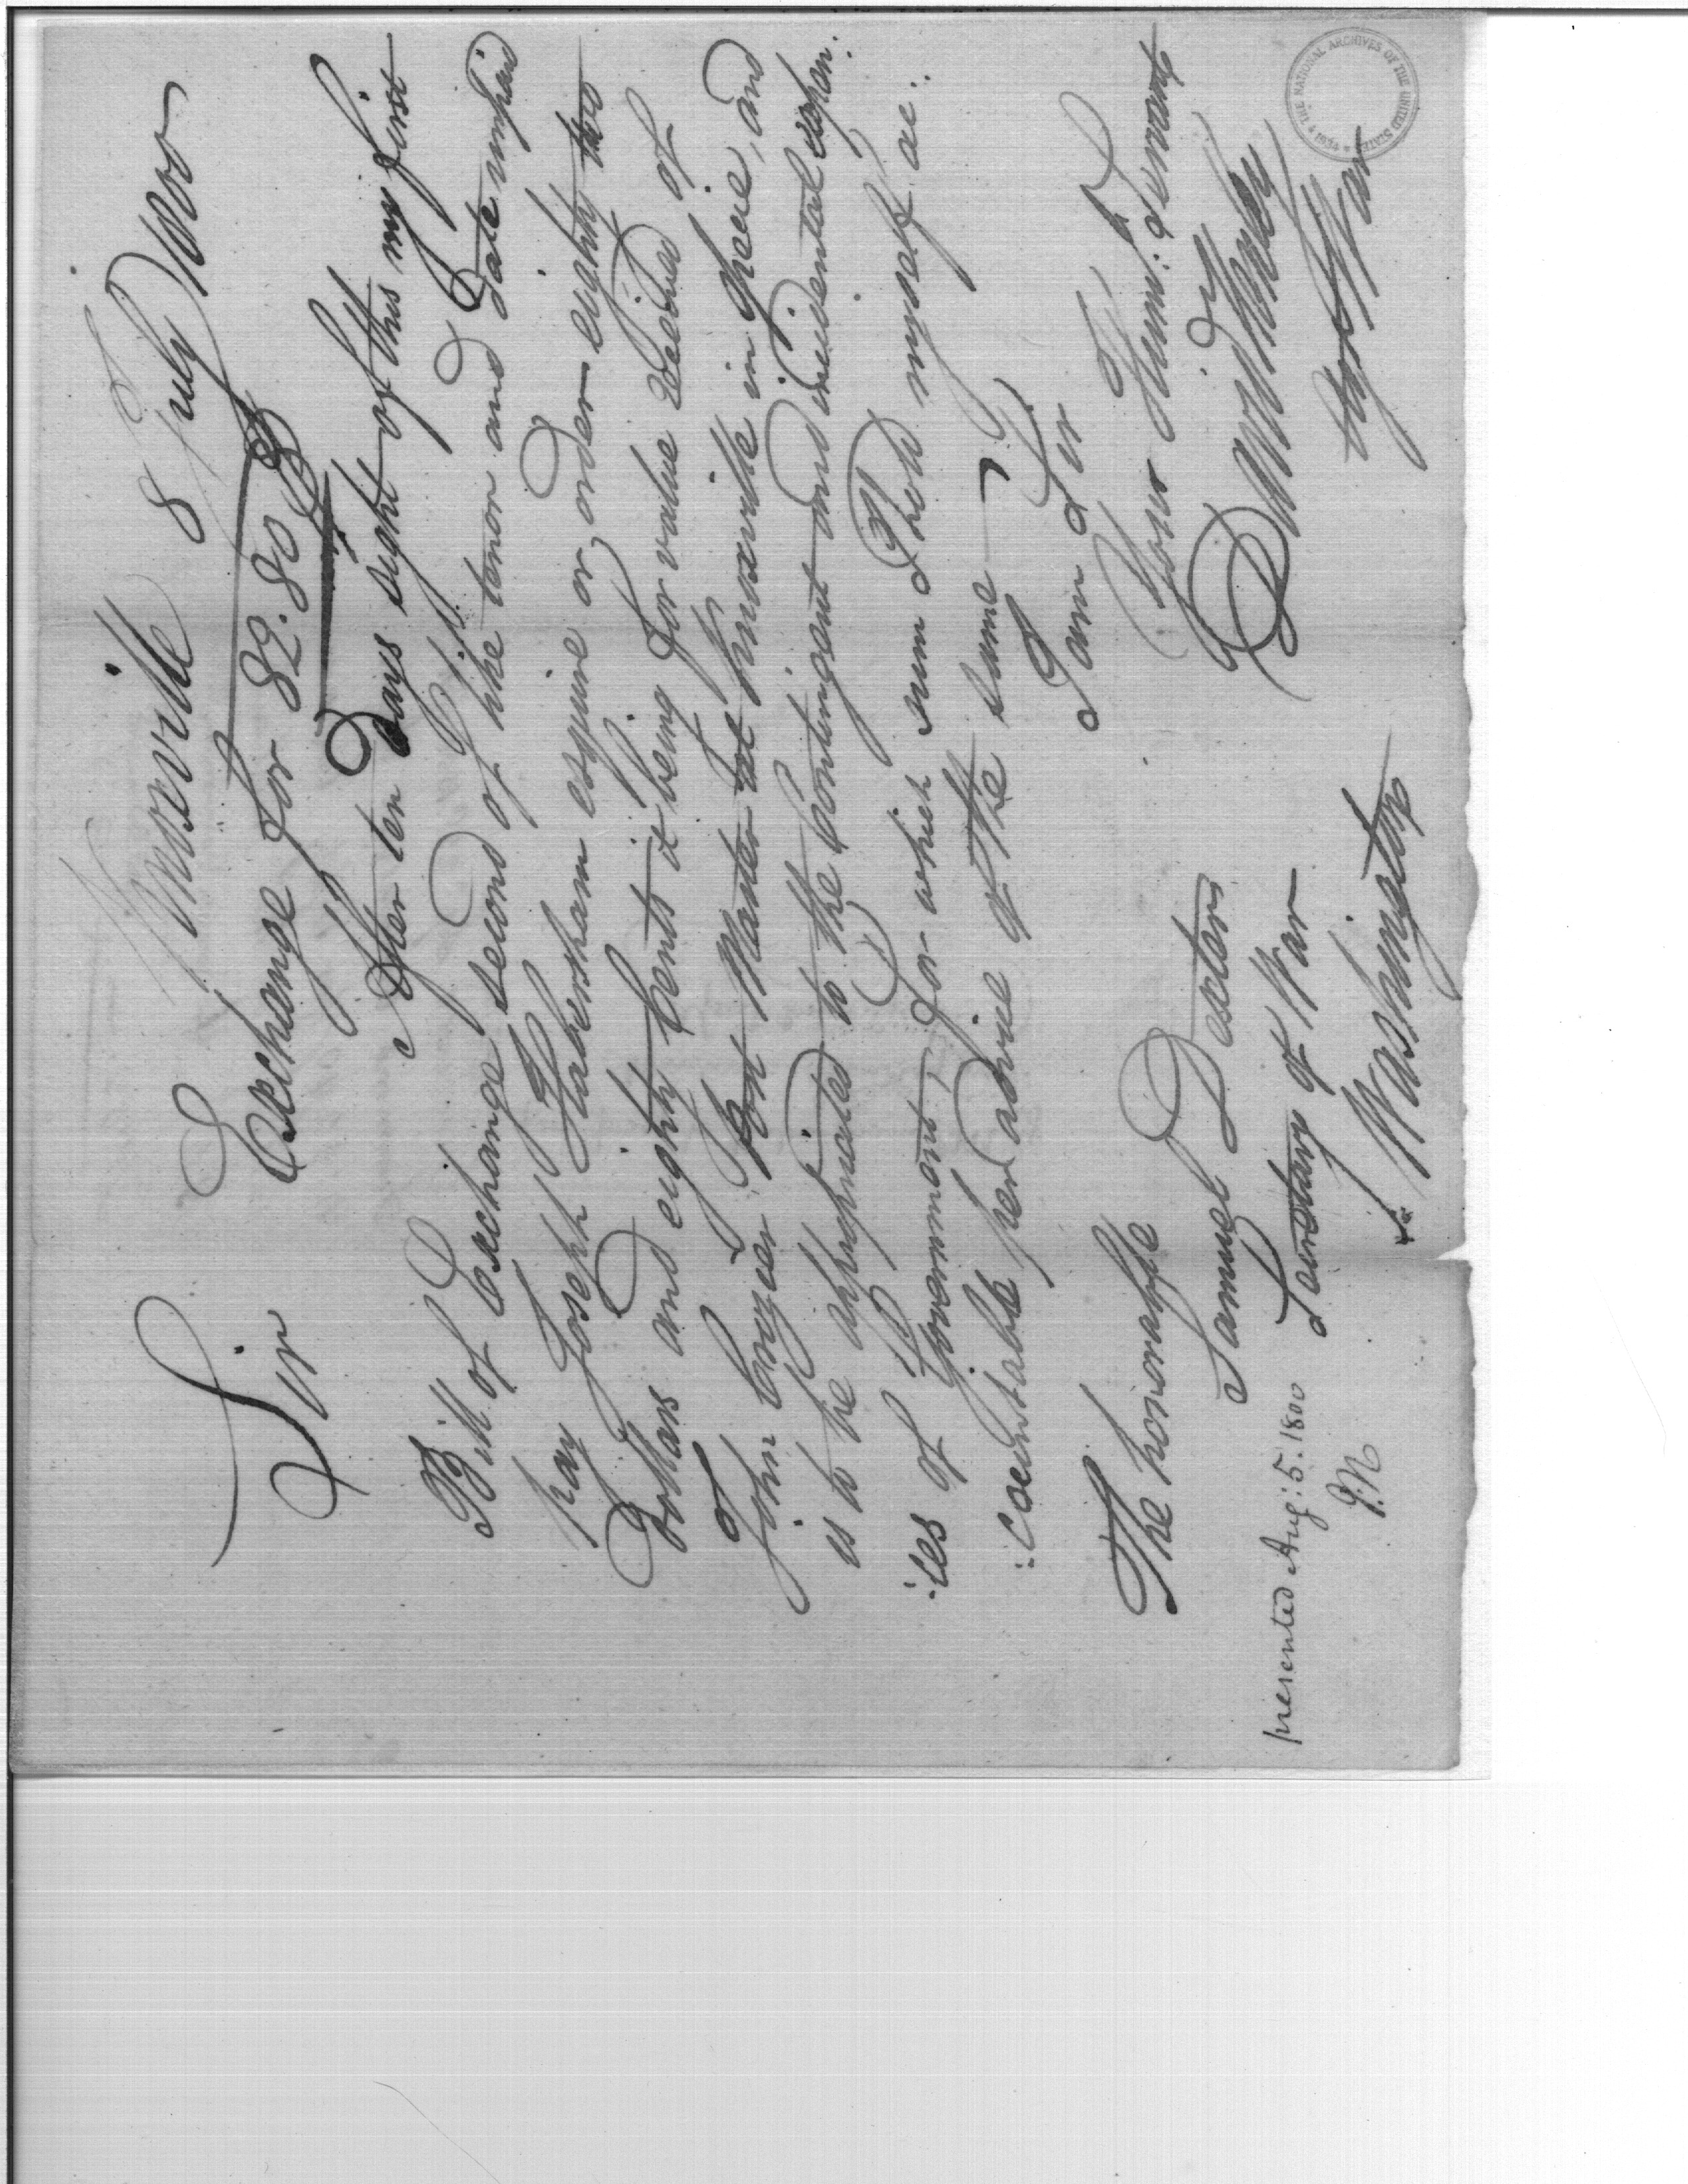 Knoxville 8 July 1800
Sir
Exchange for 82.80
After ten Days sight of this my first
Bill of Exchange, second of like tenor and Date unpaid
pay Joseph Habersham esquire or order eighty two
Dollars and eighty Cents it being for value Received of
John Crozier Post Master at Knoxville in specie, and
is to be appropriated to the Contingent and incidental expen:
:ces of Government, for which sum I hold myself ac:
:countable per advice of the same
I am Sir
Your Humb: Servant
David Henley
Agt War
The honorable
Samuel Dexter
Secretary of War
Washington
presented Aug: 5. 1800
THE NATIONAL ARCHIVES OF THE UNITED STATES 1934